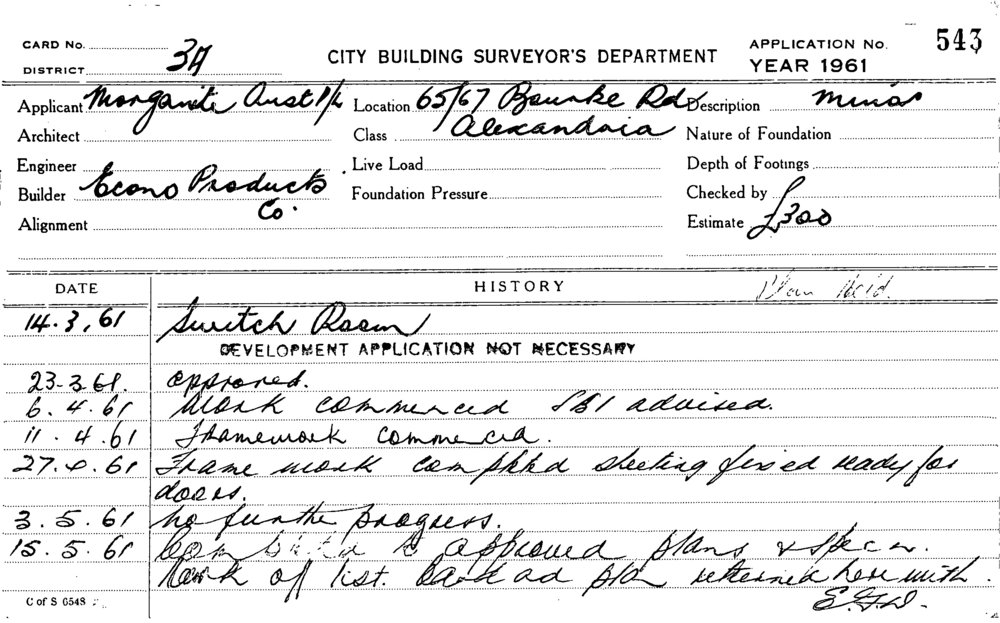 CARD No.
DISTRICT 34
CITY BUILDING SURVEYOR'S DEPARTMENT
APPLICATION No. 543
YEAR 1961
Applicant Morganite Aust P/L
Location 65/67 Bourke Rd Alexandria
Description minor
Architect
Class
Nature of Foundation
Engineer
Live Load
Depth of Footings
Builder Econo Products Co.
Foundation Pressure
Checked by
Alignment
Estimate £300
DATE
HISTORY
Plan Held.
14.3.61 Switch Room
DEVELOPMENT APPLICATION NOT NECESSARY
23-3.61. approved.
6.4.61 Work commenced SBI advised.
11.4.61 Framework commenced.
27.4.61 Frame work completed sheeting fixed ready for
doors.
3.5.61 No further progress.
15.5.61 Completed to approved plans & specn.
Mark off list. Card ad plan returned herewith.
C of S 6548